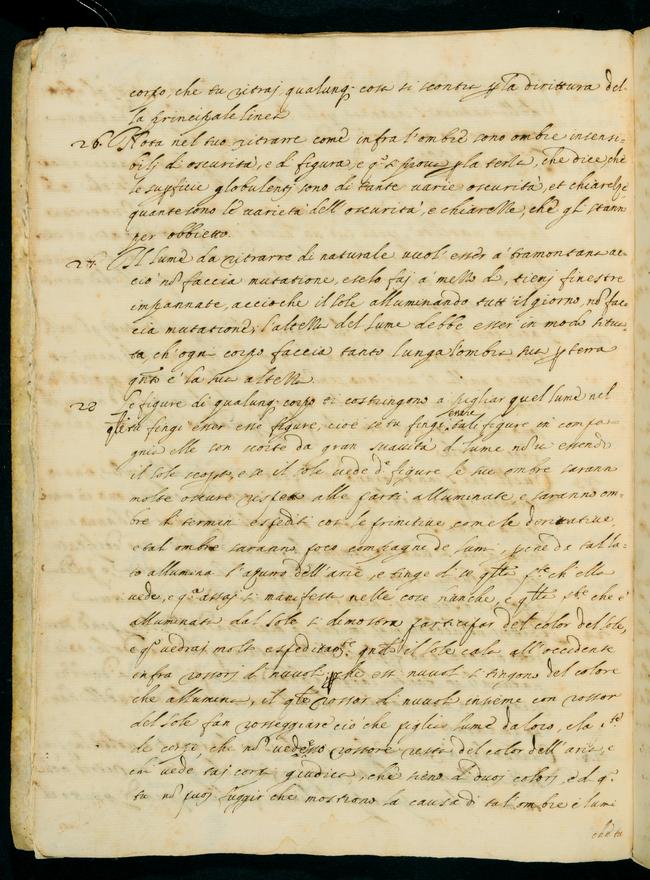 corpo, che tu ritraj qualunq. cosa si scontra p la dirittura del
la principale linea
26. Nota nel tuo ritrarre come infra l'ombre sono ombre insensi=
bilj di oscurità, e di figura, e qo si prova p la terza, che dice che
le supficie globulenti sono di tante varie oscurità, et chiarezze
quante sono le varietà dell'oscurità, e chiarezze, che gli stanno
per obbietto.
27. Il lume da ritrarre di naturale vuol esser à tramontana ac
ciò nõ faccia mutatione, e se lo faj a mezzo dì, tienj finestre
impannate, accioche il sole alluminando tutt'il giorno, nõ fac
cia mutatione, l'altezza del lume debbe esser in modo situa
ta ch'ogni corpo faccia tanto lunga l'ombra sua p terra
qnto è la sua altezza
28 e figure di qualunq. corpo ti costringono a pigliar quel lume nel
qle tu fingi esser esse figure, cioè se tu fingi tali figure in campa
gna elle son cinte da gran suavità di lume nõ vi essendo
il sole scopto, e se il sole vede de figure le sue ombre saranno
molto oscure rispetto alle parti alluminate, e saranno om=
bre di termini espediti così le primitive come le derivative,
e tal ombre saranno poco compagne de lumi, pche da tal la=
to allumina l'azuro dell'aria, e tinge di se qlla pte ch'ella
vede, e qo assaj si manifesta nelle cose bianche, e qlla pte che è
alluminata dal sole si dimostra participar del color del sole,
e qo vedraj molto espeditamte qndo il sole cala all'occidente
infra rossorj di nuvoli, che essi nuvoli si tingono del colore
che allumina, il qle rossor di nuvoli insieme con rossor
del sole fan rosseggiare ciò che piglia lume da loro, e la pte
de corpi che nõ vede esso rossore resta del color dell'aria, e
chi vede taj corpi giudica, che sieno di duoj colori, e da qo
tu nõ puoj fuggir che mostrano la causa di tal ombre e lumi
che tu